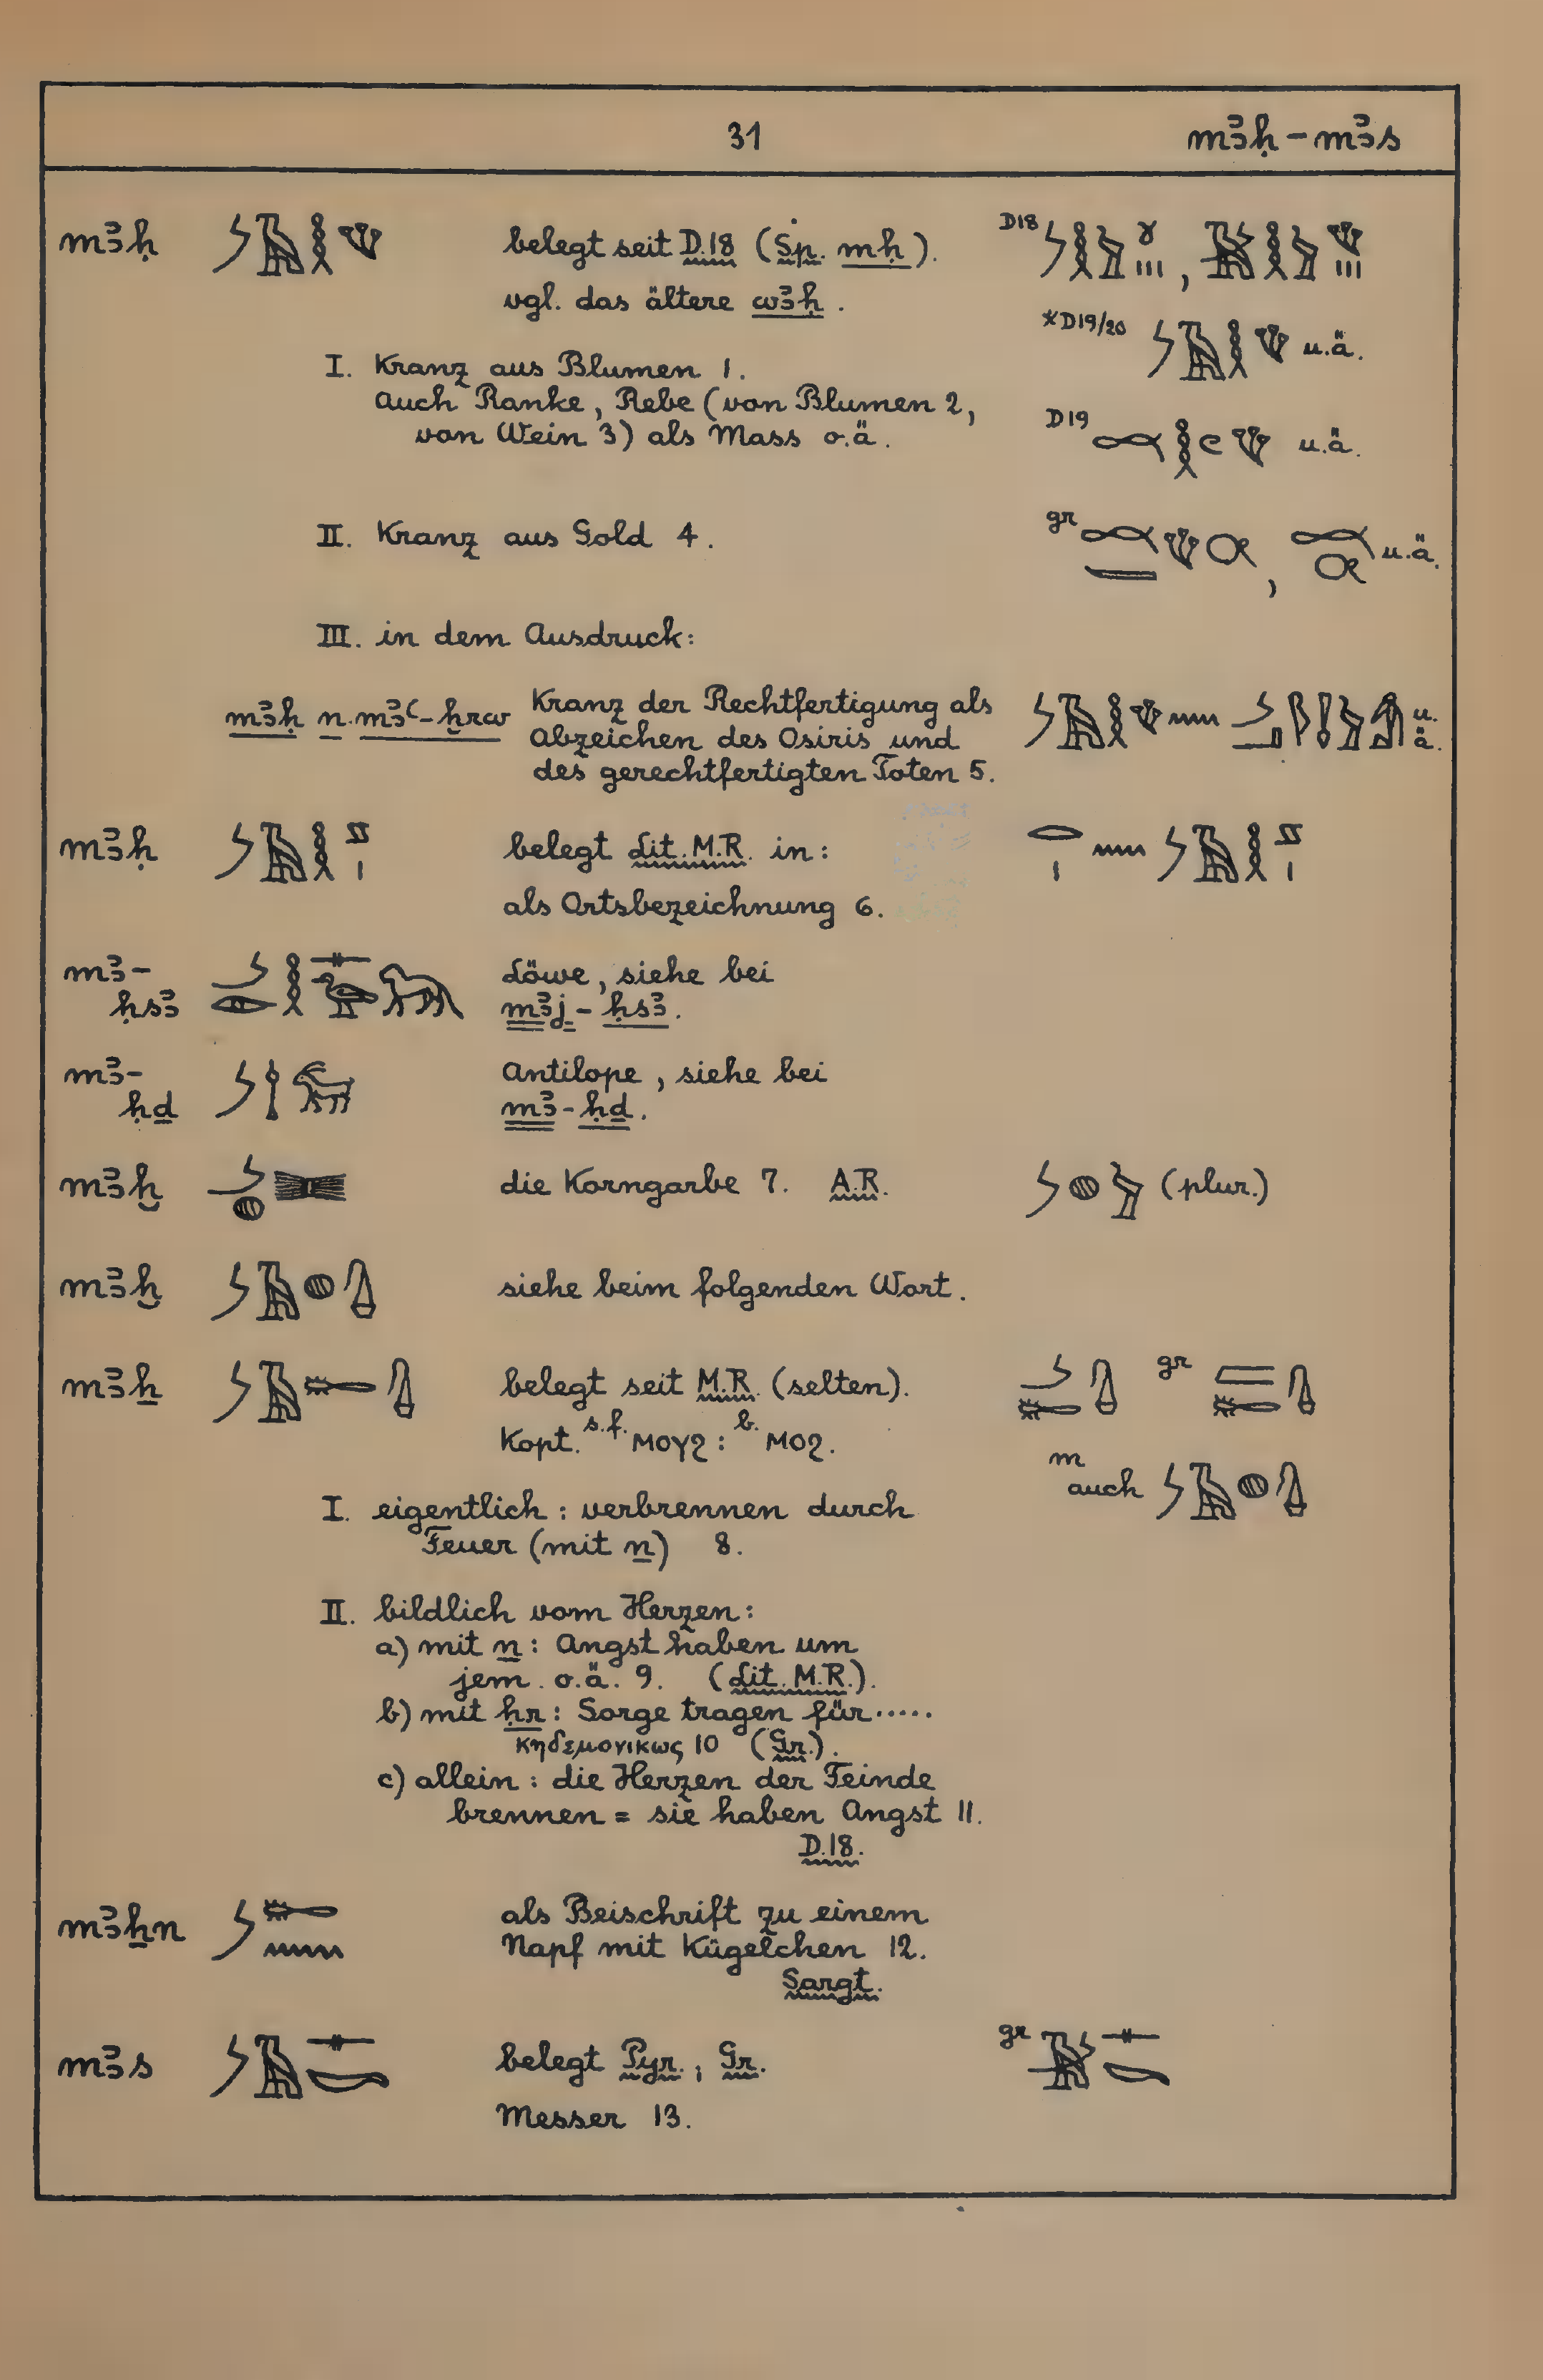 31
mꜣḥ – mꜣs
mꜣḥ
belegt seit D.18 (Sp. mḥ).
D18
vgl. das ältere wꜣḥ.
*D19/20
u.ä.
I. Kranz aus Blumen 1.
auch Ranke, Rebe (von Blumen 2,
von Wein 3) als Mass o.ä.
D19
u.ä.
II. Kranz aus Gold 4.
gr
u.ä.
III. in dem Ausdruck:
mꜣḥ n mꜣꜥ-ḫrw
Kranz der Rechtfertigung als
Abzeichen des Osiris und
des gerechtfertigten Toten 5.
u.
ä.
mꜣḥ
belegt Lit. M.R. in:
als Ortsbezeichnung 6.
mꜣ-
ḥsꜣ
Löwe, siehe bei
mꜣj-ḥsꜣ.
mꜣ-
ḥḏ
Antilope, siehe bei
mꜣ-ḥḏ.
mꜣḫ
die Korngarbe 7. A.R.
(plur.)
mꜣḫ
siehe beim folgenden Wort.
mꜣẖ
belegt seit M.R. (selten).
gr
Kopt. s.f. ⲙⲟⲩϩ : b. ⲙⲟϩ.
m
auch
I. eigentlich : verbrennen durch
Feuer (mit n) 8.
II. bildlich vom Herzen:
a) mit n : Angst haben um
jem. o.ä. 9. (Lit. M.R.).
b) mit ḥr : Sorge tragen für .....
κηδεμονικως 10 (Gr.).
c) allein : die Herzen der Feinde
brennen = sie haben Angst 11.
D.18.
mꜣẖn
als Beischrift zu einem
Napf mit Kügelchen 12.
Sargt.
mꜣs
belegt Pyr.; Gr.
gr
Messer 13.